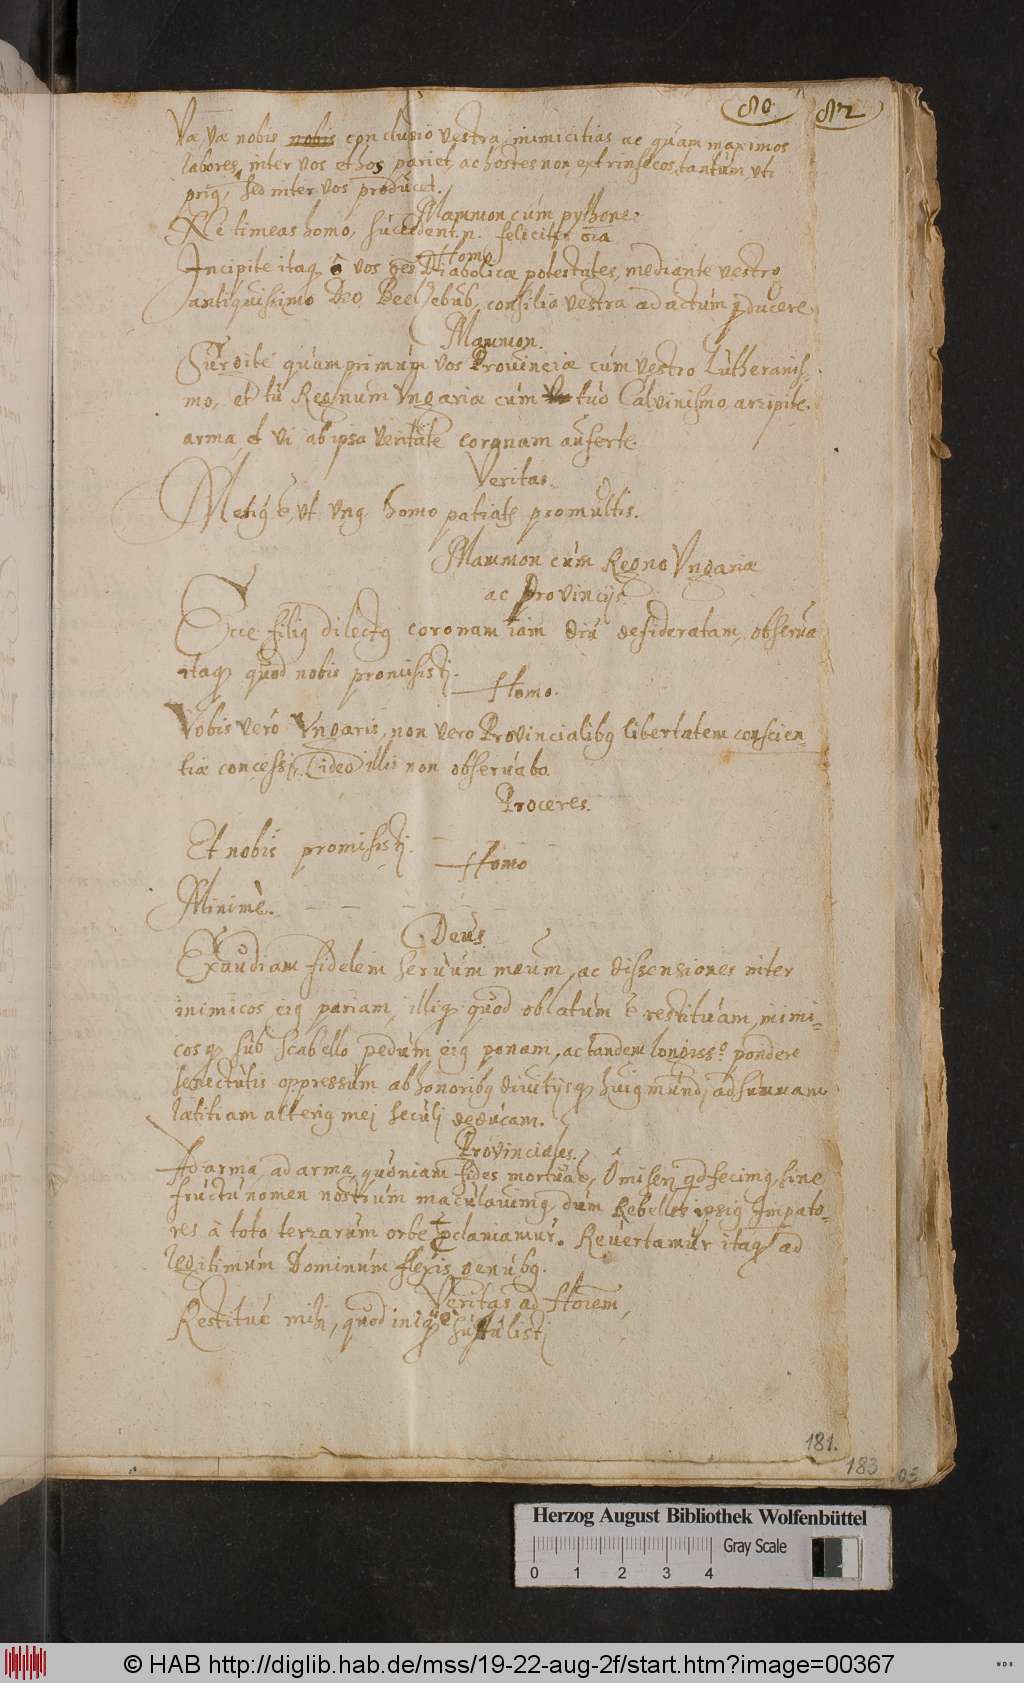 80. 82
Væ, væ nobis nobis conclusio vestra, inimicitias ac quam maximos
labores, inter vos et hos pariet, ac hostes non extrinsecos tantùm, uti
priꝰ, sed inter vos producet.
Mammon cùm pythone.
Ne timeas homo, succedent .n. felicitèr oīa
Homo
Incipite itaqꝫ ô vos oēs Diabolicæ potestates, mediante vestro
antiquissimo Deo Beelzebub, consilia vestra ad actùm ꝓducere.
Mammon.
Surgite quùm primùm vos Provinciæ cùm vestro Lutheranis-
mo, et tù Regnùm Ungariæ cùm tùo Calvinismo, arripite
arma, et vi ab ipsa veritate coronam auferte.
Veritas.
ut unꝰ homo patiatr pro multis.
Mammon cùm Regno Ungariæ
ac Provincijs.
Ecce filiꝰ dilectꝰ coronam iam diù desideratam, observa
itaqꝫ quod nobis promisisti.
Homo.
Vobis verò Ungaris, non vero Provincialibꝰ libertatem conscien-
tiæ concessi, ideo illis non observabo.
Proceres.
Et nobis promisisti.
Homo
Minimè.
Deus.
Exaudiam fidelem servùm meùm, ac dissensiones inter
inimicos eiꝰ pariam, illiqꝫ quod oblatùm ē restitùam, inimi-
cosqꝫ sùb scabello pedùm eiꝰ ponam, ac tandem longisso pondere
senectùtis oppressùm ab honoribꝰ divitijsqꝫ huiꝰ mùndi ad summam
lætitiam alteriꝰ mei seculi dedùcam.
Provinciales.
Ad arma, ad arma, quoniam fides mortua ē, Ô miseri qd fecimꝰ, sine
frùctù nomen nostrùm macùlavimꝰ, dùm Rebelles ipsiꝰ Impato-
res à toto terrarùm orbe ꝓclamamùr. Revertamùr itaqꝫ ad
legitimùm Dominùm flexis genùbꝰ.
Veritas ad Hoiem,
Restitue mihi, quod iniqùè sùstùlisti
181.
183
05
Herzog August Bibliothek Wolfenbüttel
Gray Scale
0 1 2 3 4
© HAB http://diglib.hab.de/mss/19-22-aug-2f/start.htm?image=00367